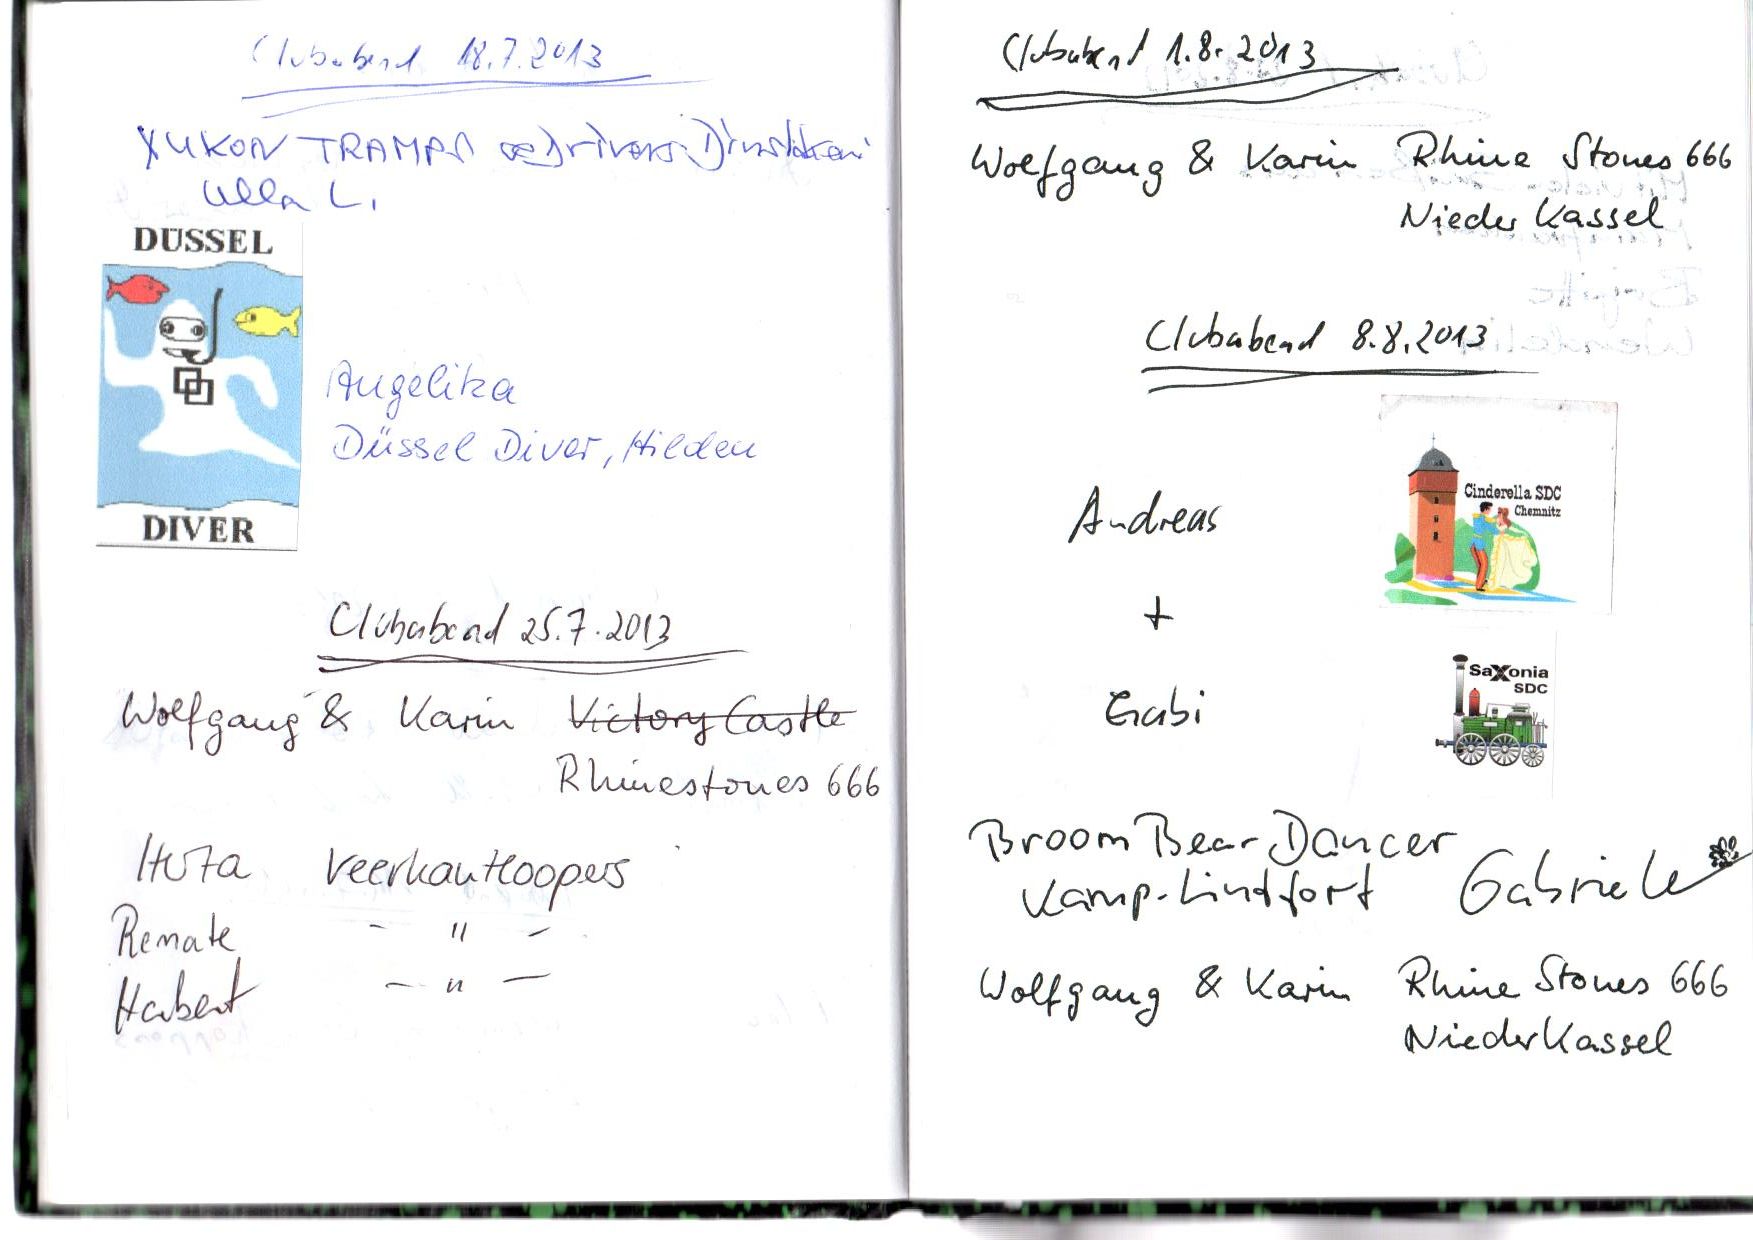 Clubabend 18.7.2013
YUKON TRAMPS
Ulla L.
DÜSSEL
DIVER
Angelika
Düssel Diver, Hilden
Clubabend 25.7.2013
Wolfgang & Karin Victory Castle
Rhinestones 666
Veerkanthoppers
Renate - " -
- " -
Clubabend 1.8.2013
Wolfgang & Karin Rhine Stones 666
Nieder Kassel
Clubabend 8.8.2013
Cinderella SDC
Chemnitz
Andreas
+
Gabi
SaXonia
SDC
Broom Bear Dancer
Kamp-Lintfort Gabriele
Wolfgang & Karin Rhine Stones 666
NiederKassel